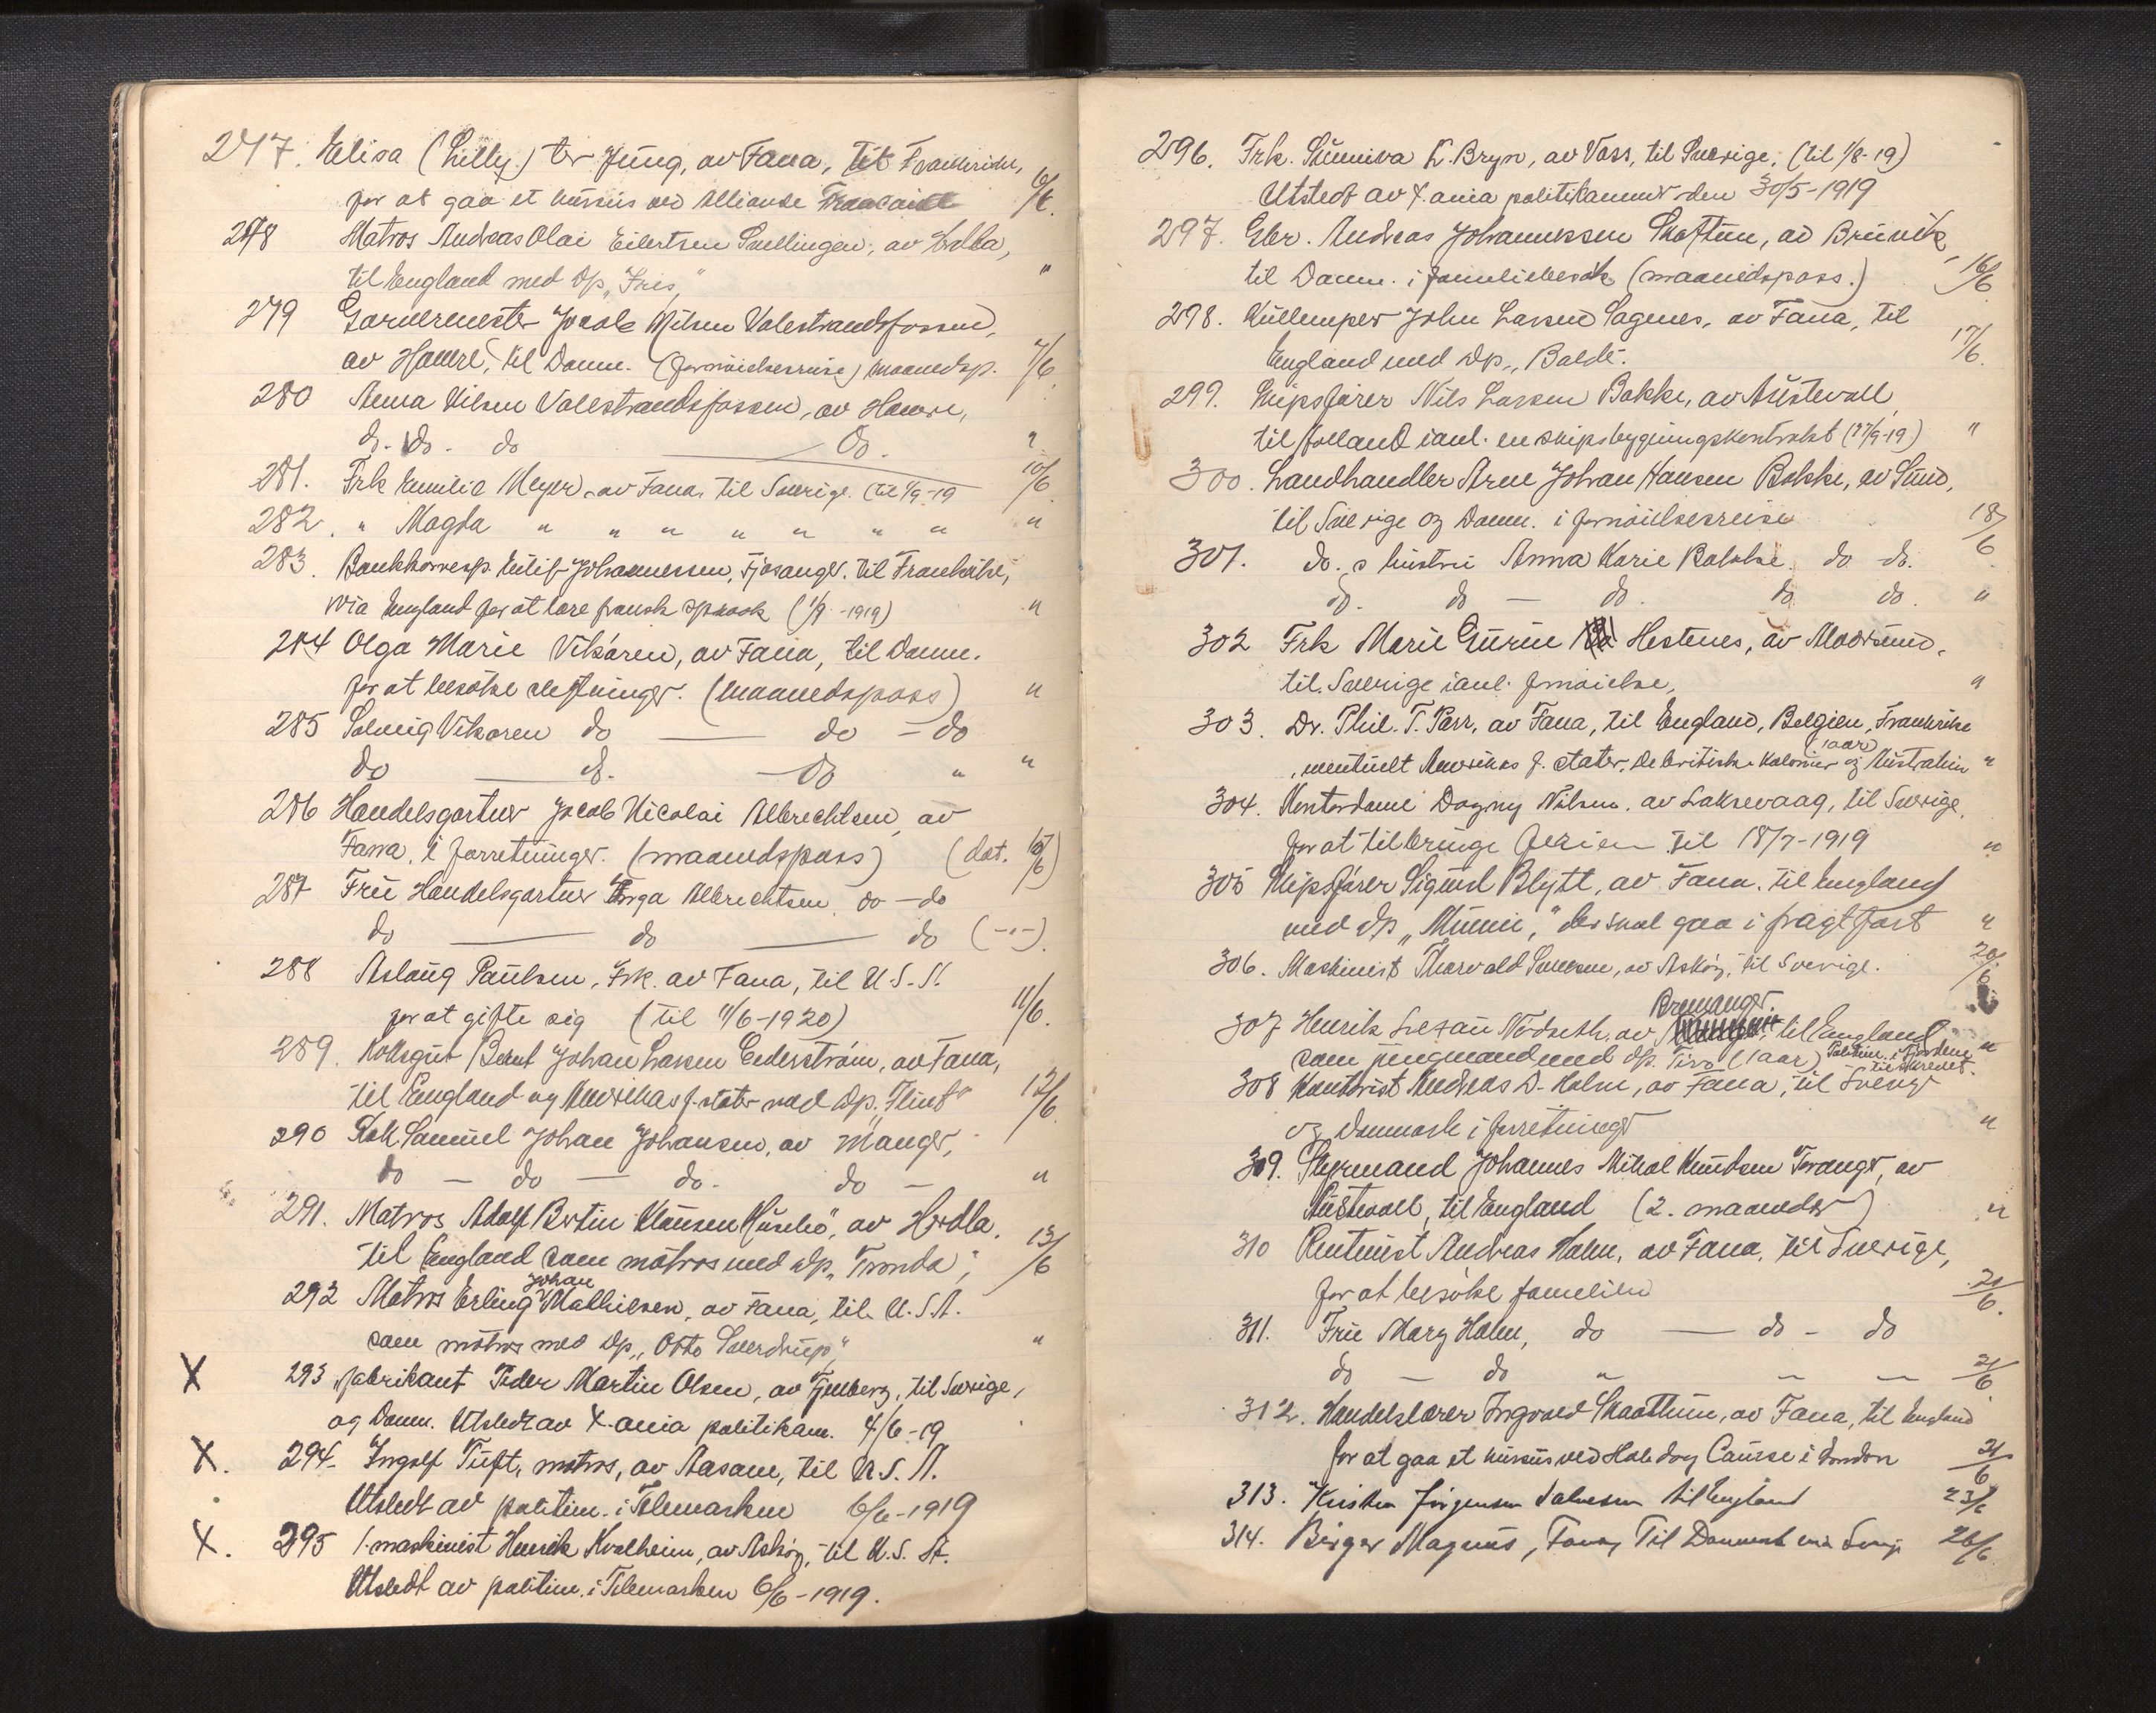 247. Elisa (Lilly) ter Jung, av Fana, til Frankrike,
for at gaa et kursus ved Alliance Francaise 6/6.
278 Matros Andreas Olai Eilertsen Snellingen, av Herdla,
til England med Dp. "Iris" "
279 Garvermester Jacob Nilsen Valestrandsfossen,
av Hamre, til Danm. (fornöielsesreise) maanedsp. 7/6.
280 Anna Nilsen Valestrandsfossen, av Hamre,
do. do. do — do. "
281. Frk Emilie Meyer, av Fana, til Sverige. (til 1/9-19 10/6
282. " Magda " " " " " " " "
283. Bankkorresp. Leif Johannessen, Fjösanger. til Frankrike,
via England for at lære fransk sprook (1/9-1919) "
284 Olga Marie Vikören, av Fana, til Danm.
for at besöke slegtninger. (maanedspass) "
285 Solveig Vikören do — do - do
do — do. — do " "
286 Handelsgartner Jacob Nicolai Albrechtsen, av
Fana, i forretninger. (maanedspass) (dat. 16/6)
287 Frü Handelsgartner Inga Albrechtsen do - do
do — do — do (-"-).
288 Aslaug Paulsen, Frk. av Fana, til U.S.A.
for at gifte sig (til 11/6-1920) 11/6.
289. Koksgut Bernt Johan Larsen Cederström, av Fana,
til England og Amerikas f. stater med Dp. "Flint" 12/6.
290 Kok Samuel Johan Johansen, av Manger,
do — do — do. do — "
291. Matros Adolf Bertin Klausen Husebö, av Herdla,
til England som matros med dp. "Tromba", 13/6
292 Matros Erling Johan Mathiesen, av Fana, til U.S.A.
som matros med dp. "Otto Sverdrup", "
X 293 Fabrikant Peder Martin Olsen, av Fjelberg, til Sverige,
og Danm. Utstedt av X.ania politikam. 4/6-19
X. 294. Ingolf Tuft, matros, av Aasane, til U.S.A.
Utstedt av politim. i Telemarken 6/6-1919
X. 295 1. maskinist Henrik Kvalheim, av Asköy, til U.S.A.
Utstedt av politim. i Telemarken 6/6-1919.
296. Frk. Sunniva K. Bryn, av Voss, til Sverige, (til 1/8-19)
Utstedt av X.ania politikammer den 30/5-1919
297. Gbr. Andreas Johannessen Skaftun, av Bruvik,
til Danm. i familiebesök (maanedspass.) 16/6.
298. Kullemper John Larsen Sagenes, av Fana, til
England med dp. "Balde". 17/6.
299. Skipsförer Nils Larsen Bakke, av Austevoll,
til Holland ianl. en skipsbygningskontrakt (17/9-19) "
300. Landhandler Arne Johan Hansen Bakke, av Sund,
til Sverige og Danm. i fornöielsesreise 18/6
301. do.s hustru Anna Karie Bakke. do do.
do. do — do. do do. "
302 Frk Marie Gurine Hestenes, av Modrsund,
til Sverige ianl. fornöielse, "
303. Dr. Phil. T. Parr, av Fana, til England, Belgien, Frankrike
, eventuelt Amerikas f. stater, de britiske kolonier og Australien (1 aar) "
304. Kontordame Dagny Nilsen, av Laksevaag, til Sverige,
for at tilbringe ferien til 18/7-1919 "
305 Skipsförer Sigurd Blytt, av Fana, til England
med dp "Munin", der skal gaa i fragtfart "
306. Maskinist Thorvald Svensen, av Asköy, til Sverige. 20/6
307 Henrik Nödseth, av Bremanger, til England "
som jungmand med dp. Tiro (1 aar) Politim. i Fjordene tilskrevet.
308 Kontorist Andreas D. Holm, av Fana, til Sverige
og Danmark i forretninger "
309. Styrmand Johannes Mikal Knudsen Toranger, av
Austevoll, til England (2. maaneder) "
310 Rentenist Andreas Holm, av Fana, til Sverige,
for at besöke familien 21/6.
311. Frü Mary Holm, do — do - do
do — do " — — 21/6.
312. Handelslærer Ingvald Skaathun, av Fana, til England
for at gaa et kursus ved Holiday Course i London 21/6
313. Kirsten Jörgensen Salvesen til England 23/6
314. Birger Magnus, Fana, Til Danmark via Sverige 26/6.